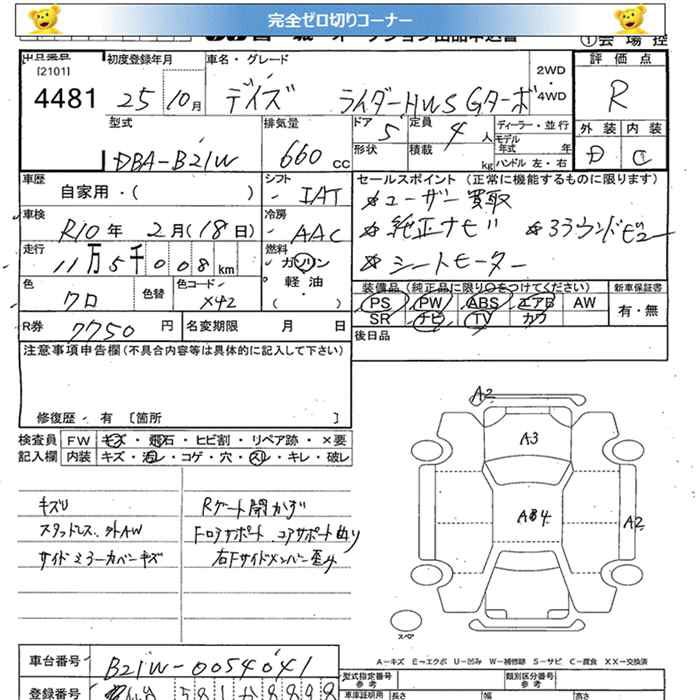 完全ゼロ切りコーナー
[2101]
4481
初度登録年月
25 10月
車名・グレード
デイズ ライダーHWS Gターボ
2WD・4WD
評価点
R
型式
DBA-B21W
排気量
660 cc
ドア 5
定員 4 人
形状
積載 kg
ディーラー・並行
モデル年式 年
ハンドル 左・右
外装 内装
D C
車歴
自家用・( )
シフト
IAT
セールスポイント (正常に機能するものに限ります)
☆ユーザー買取
☆純正ナビ ☆ラウンドビュー
☆シートモーター
車検
R10年 2月(18日)
冷房
AAC
走行
11万5千008km
燃料
ガソリン・軽油・( )
色
クロ
色替
色コード
X42
装備品 (純正品に限り○をつけてください)
PS PW ABS エアB AW
SR ナビ TV カワ
新車保証書
有・無
R券 7750円
名変期限 月 日
後日品
注意事項申告欄 (不具合内容等は具体的に記入して下さい)
修復歴・有 [箇所 ]
検査員 FW キズ・飛石・ヒビ割・リペア跡・×要
記入欄 内装 キズ・汚レ・コゲ・穴・スレ・キレ・破レ
キズU
スタッドレス、外AW
サイドミラーカバーキズ
Rゲート開かず
Fロアサポート コアサポート曲り
右Fサイドメンバー歪み
A2
A3
A2
スペア
A-キズ E-エクボ U-凹み W-補修跡 S-サビ C-腐食 XX-交換済
車台番号
B21W-0054041
型式指定番号
類別区分番号
参考
参考
登録番号
長さ
幅
高さ